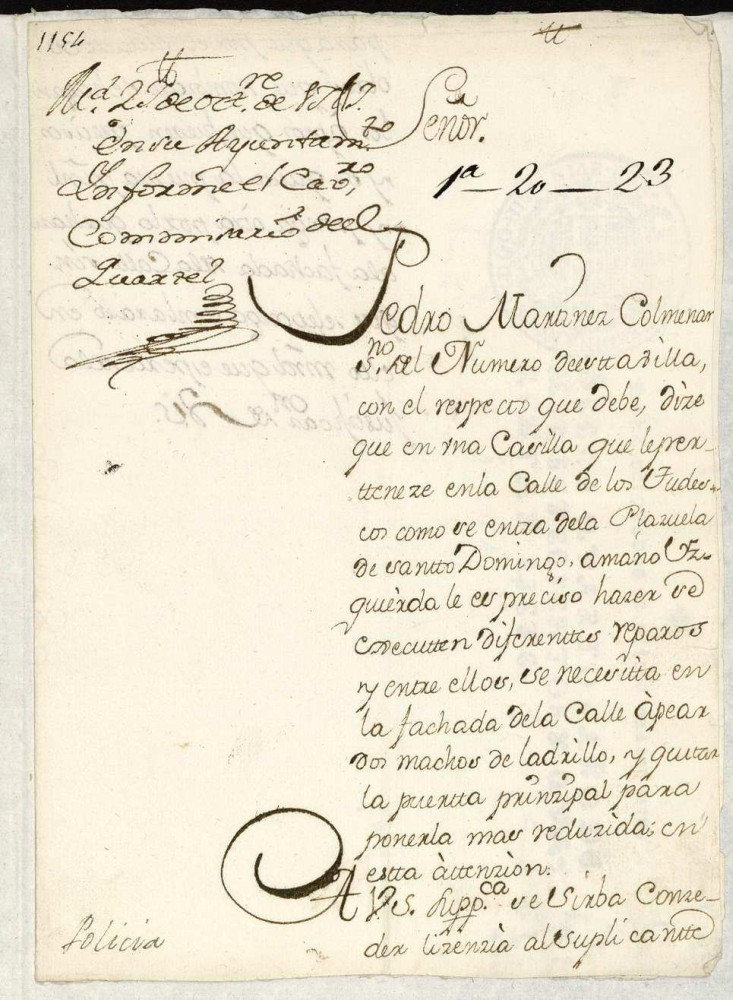 1154
Md. 27 de octre. de 1767.
En su Ayuntamto.
Informe el Cavro.
Commisario del
Quartel
Señor.
1ª - 20 - 23
Pedro Martinez Colmenar
sno. del Numero de estta villa,
con el respecto que debe, dize
que en vna Casilla que le per-
tteneze en la Calle de los Tudes-
cos como se entra de la Plazuela
de santto Domingo, a mano Yz-
quierda le es preciso hazer se
executten diferenttes reparos
y entre ellos, se necesitta en
la fachada de la Calle àpear
dos machos de ladrillo, y quitar
la puertta prinzipal para
ponerla mas reduzida; en
estta àttenzion.
A V.S. suppca. se sirba Conze-
der lizenzia al suplicantte
Policia